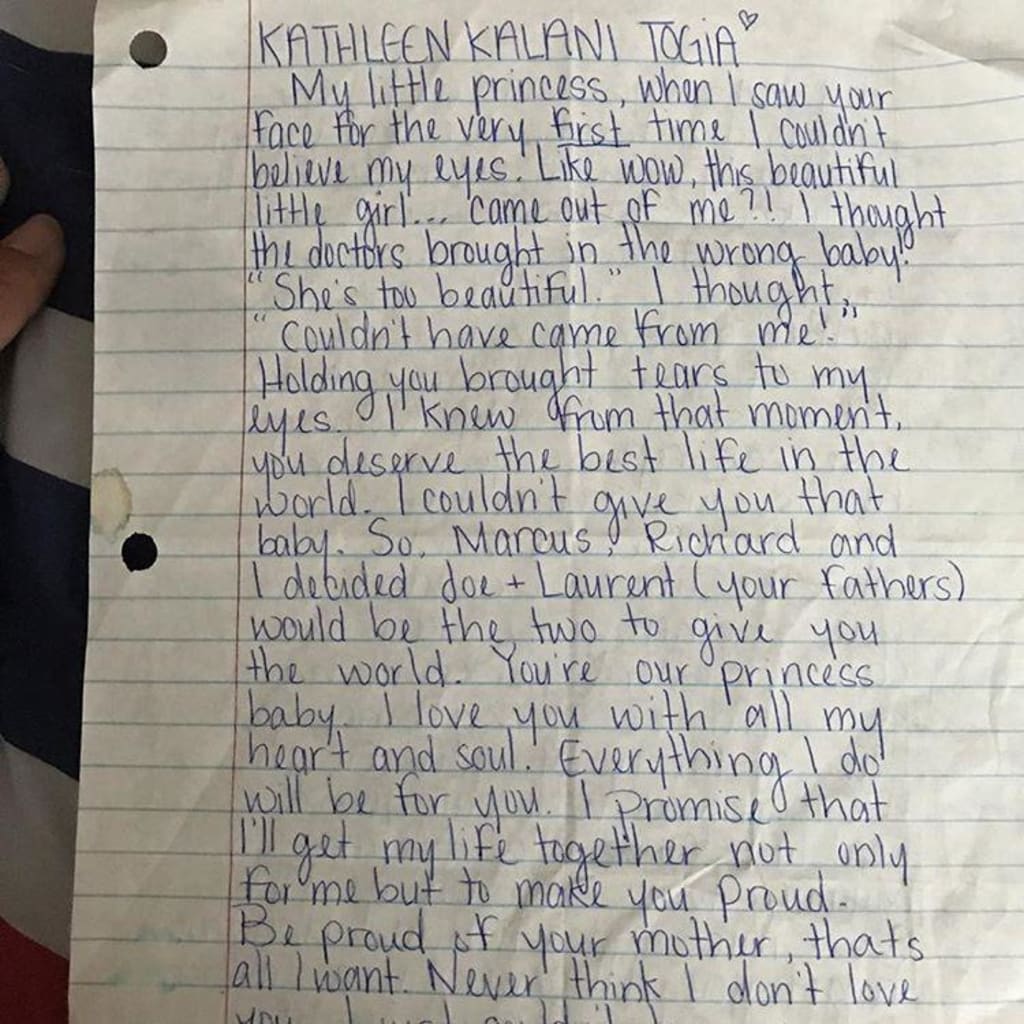 KATHLEEN KALANI TOGIA♡
My little princess, when I saw your
face for the very first time I couldn't
believe my eyes! Like wow, this beautiful
little girl... came out of me?! I thought
the doctors brought in the wrong baby!
"She's too beautiful." I thought,
"couldn't have came from me!"
Holding you brought tears to my
eyes. I knew from that moment,
you deserve the best life in the
world. I couldn't give you that
baby. So, Marcus, Richard and
I decided Joe + Laurent (your fathers)
would be the two to give you
the world. You're our princess
baby. I love you with all my
heart and soul. Everything I do
will be for you. I promise that
I'll get my life together not only
for me but to make you proud.
Be proud of your mother, thats
all I want. Never think I don't love
you I just couldn't